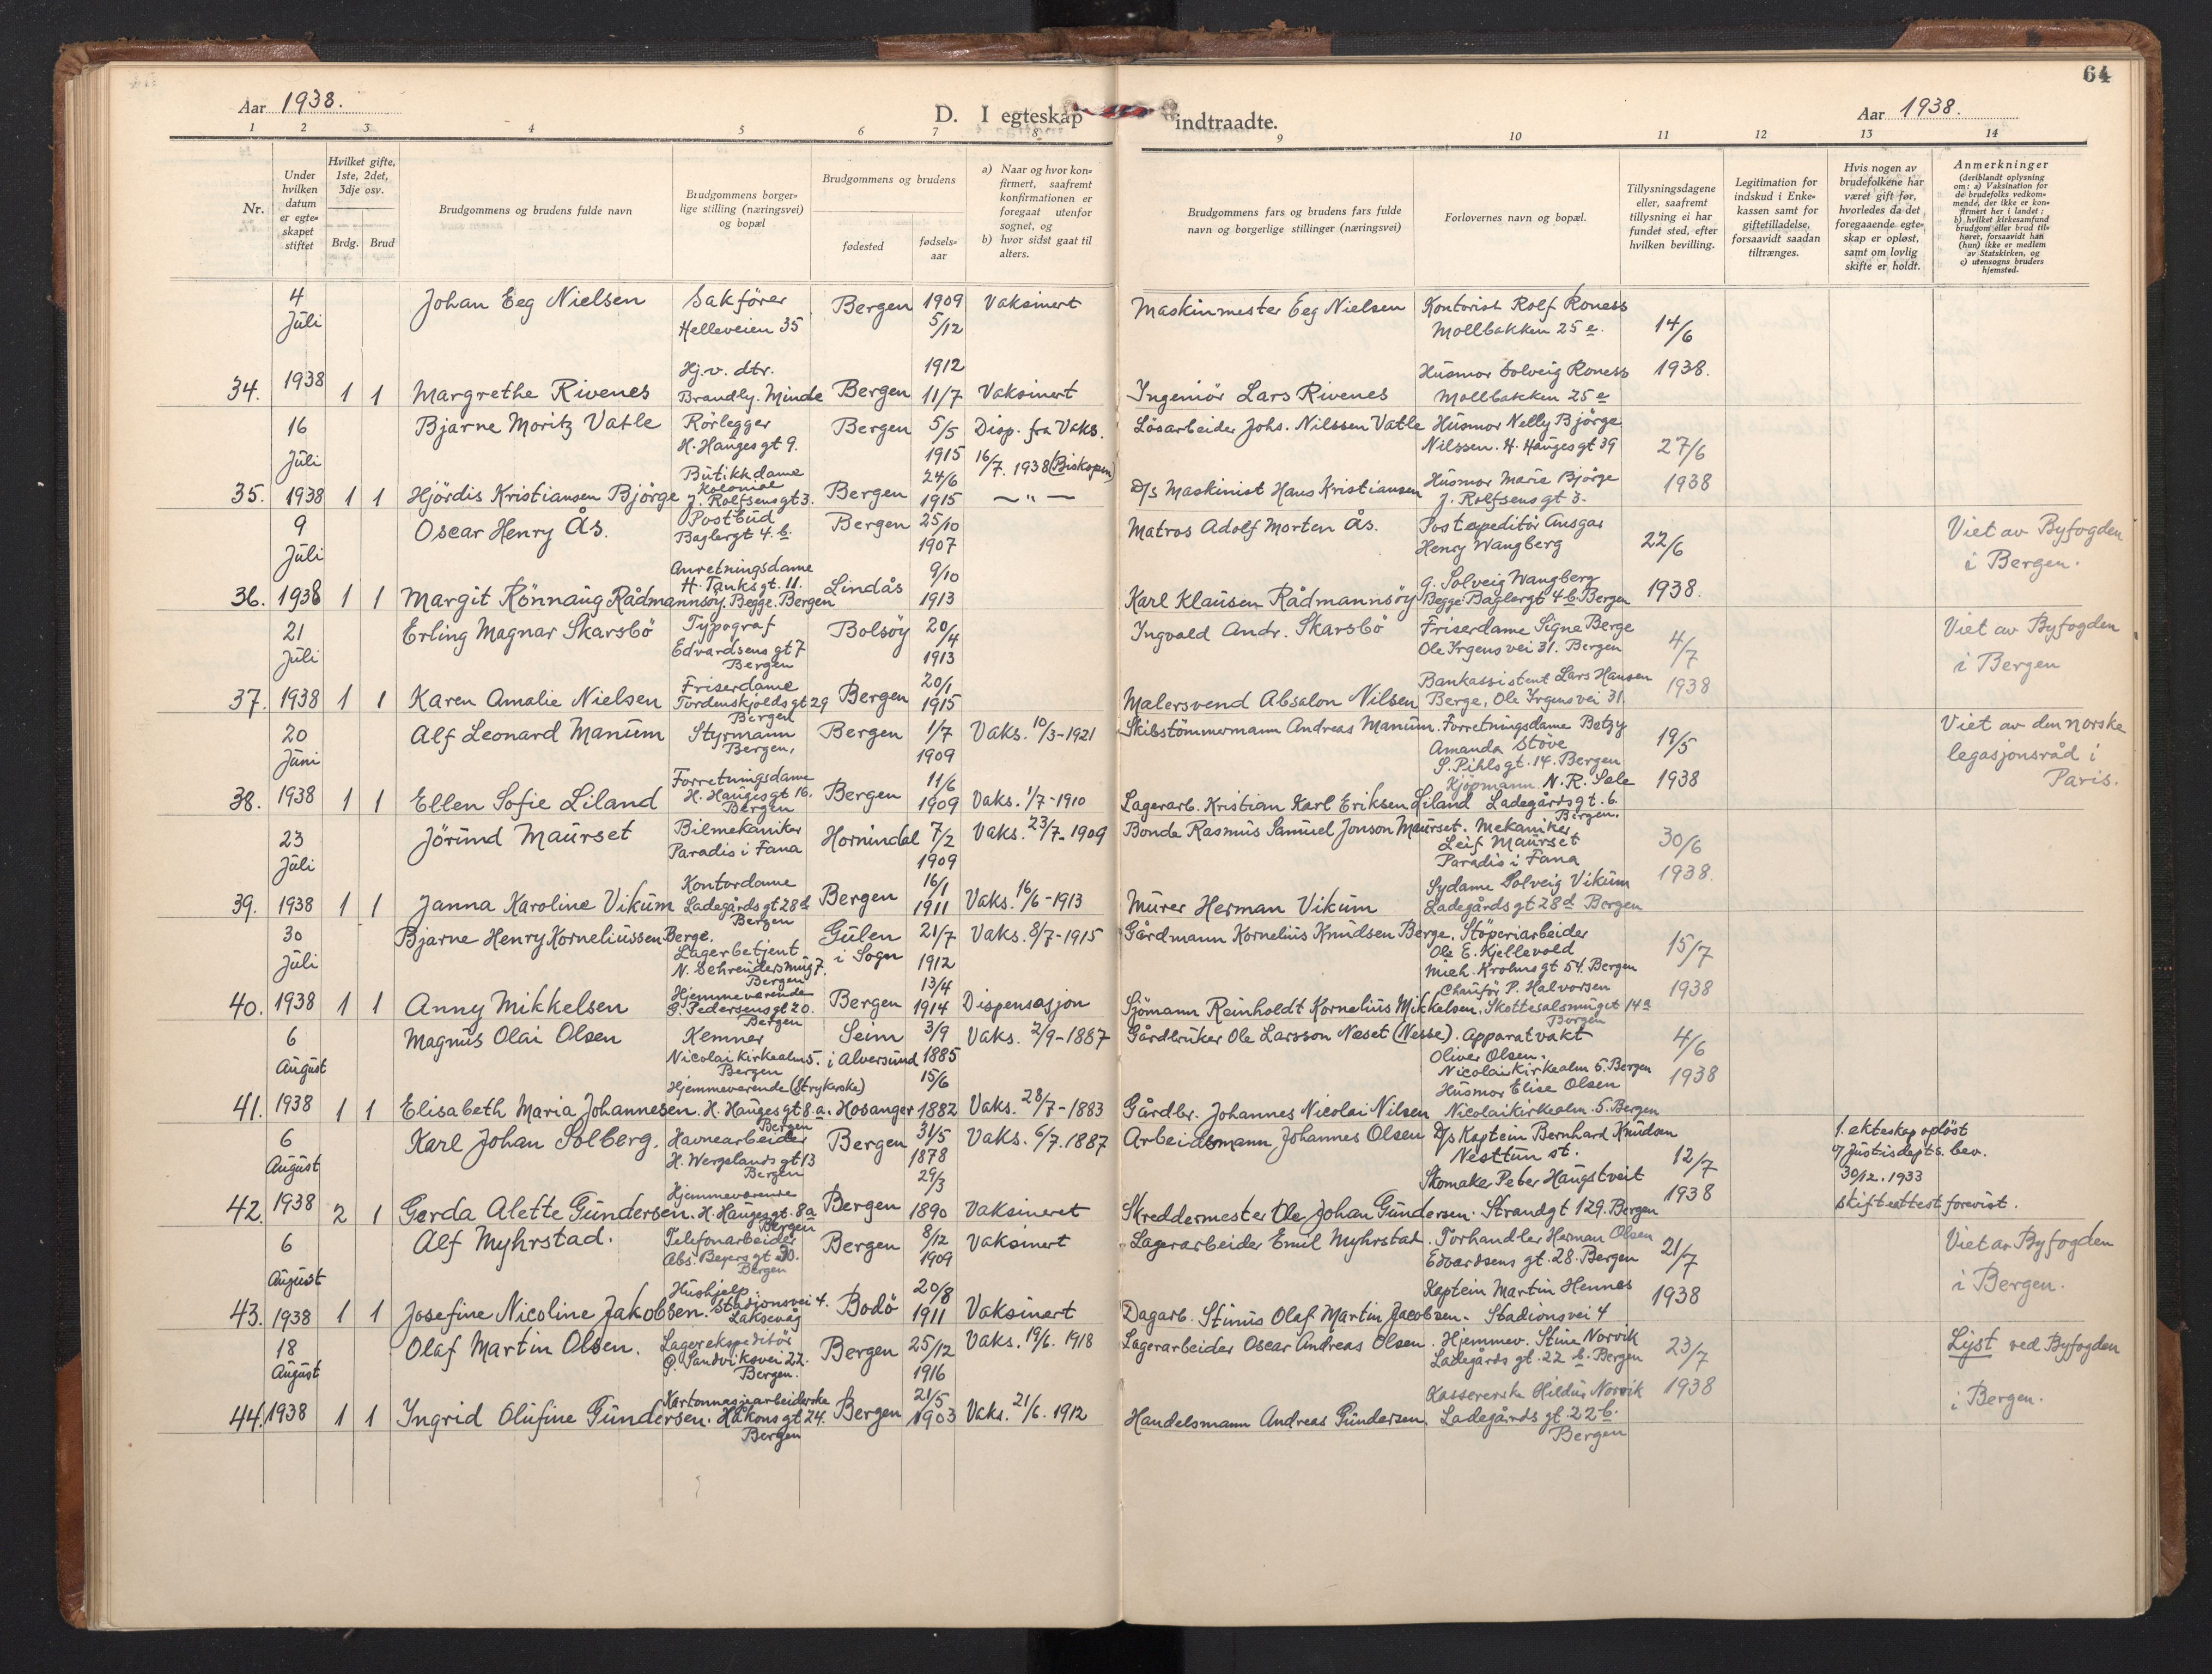 64
Aar 1938.
D. I egteskap indtraadte.
Aar 1938.
1 2 3 4 5 6 7 8 9 10 11 12 13 14
Nr.
Under hvilken datum er egteskapet stiftet
Hvilket gifte, 1ste, 2det, 3dje osv.
Brdg. Brud
Brudgommens og brudens fulde navn
Brudgommens borgerlige stilling (næringsvei) og bopæl
Brudgommens og brudens
fødested
fødselsaar
a) Naar og hvor konfirmert, saafremt konfirmationen er foregaat utenfor sognet, og
b) hvor sidst gaat til alters.
Brudgommens fars og brudens fars fulde navn og borgerlige stillinger (næringsvei)
Forlovernes navn og bopæl.
Tillysningsdagene eller, saafremt tillysning ei har fundet sted, efter hvilken bevilling.
Legitimation for indskud i Enkekassen samt for giftetilladelse, forsaavidt saadan tiltrænges.
Hvis nogen av brudefolkene har været gift før, hvorledes da det foregaaende egteskap er opløst, samt om lovlig skifte er holdt.
Anmerkninger
(deriblandt oplysning om: a) Vaksination for de brudefolks vedkommende, der ikke er konfirmert her i landet; b) hvilket kirkesamfund brudgom eller brud tilhører, forsaavidt han (hun) ikke er medlem av Statskirken, og c) utensogns bruders hjemsted.
4 Juli Johan Eeg Nielsen Sakfører Helleveien 35 Bergen 1909 5/12 Vaksinert Maskinmester Eeg Nielsen Kontorist Rolf Roness Mollbakken 25 e. 14/6
34. 1938 1 1 Margrethe Rivenes Hj.v. dtr. Brandly. Minde Bergen 1912 11/7 Vaksinert Ingeniör Lars Rivenes Husmor Solveig Roness Mollbakken 25 e 1938.
16 Juli Bjarne Moritz Vatle Rörlegger H. Hauges gt 9. Bergen 5/5 1915 Disp. fra Vaks. 16/7. 1938 (Biskopen) Lösarbeider Johs. Nilssen Vatle Husmor Nelly Bjørge Nilssen. H. Hauges gt 39 27/6
35. 1938 1 1 Hjördis Kristiansen Bjørge Butikkdame Kolonial J. Rolfsens gt 3. Bergen 24/6 1915 — " — D/s Maskinist Hans Kristiansen Husmor Marie Bjørge J. Rolfsens gt 3. 1938
9 Juli Oscar Henry Ås. Postbud Baglergt 4. b. Bergen 25/10 1907 Matros Adolf Morten Ås. Postexpeditör Ansgar Henry Wangberg 22/6 Viet av Byfogden i Bergen.
36. 1938 1 1 Margit Rönnaug Rådmannsöy. Anretningsdame H. Tanks gt. 11. Begge. Bergen Lindås 9/10 1913 Karl Klausen Rådmannsöy G. Solveig Wangberg Begge Baglergt 4 b. Bergen 1938.
21 Juli Erling Magnar Skarsbö Typograf Edvardsens gt 7 Bergen Bolsöy 20/4 1913 Ingvald Andr. Skarsbö Friserdame Signe Berge Ole Irgens vei 31. Bergen 4/7 Viet av Byfogden i Bergen
37. 1938 1 1 Karen Amalie Nielsen Friserdame Tordenskjolds gt 29 Bergen Bergen 20/1 1915 Malersvend Absalon Nilsen Bankassistent Lars Hansen Berge, Ole Irgens vei 31. 1938
20 Juni Alf Leonard Manum Styrmann Bergen, Bergen 1/7 1909 Vaks. 10/3-1921 Skibstömmermann Andreas Manum. Forretningsdame Betzy Amanda Støve S. Pihls gt. 14. Bergen 19/5 Viet av den norske legasjonsråd i Paris.
38. 1938 1 1 Ellen Sofie Liland Forretningsdame H. Hauges gt 16. Bergen Bergen 11/6 1909 Vaks. 1/7-1910 Lagerarb. Kristian Karl Eriksen Liland Kjöpmann N. R. Sele Ladegårds gt. 6. Bergen. 1938
23 Juli Jörund Maurset Bilmekaniker Paradis i Fana Hornindal 7/2 1909 Vaks. 23/7-1909 Bonde Rasmus Samuel Jonson Maurset. Mekaniker Leif Maurset Paradis i Fana 30/6
39. 1938 1 1 Janna Karoline Vikum Kontordame Ladegårds gt 28 d Bergen Bergen 16/1 1911 Vaks. 16/6-1913 Murer Herman Vikum Sydame Solveig Vikum Ladegårds gt 28 d Bergen 1938.
30 Juli Bjarne Henry Korneliussen Berge. Lagerbetjent N. Sehrendersmug 7. Bergen Gulen i Sogn 21/7 1912 Vaks. 8/7-1915 Gårdmann Kornelius Knudsen Berge. Støperiarbeider Ole E. Kjellevold Mich. Krohns gt 54. Bergen 15/7
40. 1938 1 1 Anny Mikkelsen Hjemmeværende G. Pedersens gt 20. Bergen Bergen 13/4 1914 Dispensasjon Sjömann Reinholdt Kornelius Mikkelsen. Chauför P. Halvorsen Skottesalsmuget 14 a Bergen 1938
6 August Magnus Olai Olsen Kemner Nicolaikirkealm 5. Bergen Seim i Alversund 3/9 1885 Vaks. 2/9-1887 Gårdbruker Ole Larsson Neset (Nesse). Apparatvakt Oliver Olsen. Nicolaikirkealm 5. Bergen 4/6
41. 1938 1 1 Elisabeth Maria Johannesen. Hjemmeværende (Strykerske) H. Hauges gt 8. a. Bergen Hosanger 15/6 1882 Vaks. 28/7-1883 Gårdbr. Johannes Nicolai Nilsen Husmor Elise Olsen Nicolaikirkealm. 5. Bergen 1938
6 August Karl Johan Solberg. Havnearbeider H. Wergelands gt 13 Bergen Bergen 31/5 1878 Vaks. 6/7. 1887 Arbeidsmann Johannes Olsen D/s Kaptein Bernhard Knudsen Nesttun st. 12/7 1. ekteskap oplöst v/ Justisdept's. bev. 30/12. 1933 skifteattest forevist.
42. 1938 2 1 Gerda Alette Gundersen. Hjemmeværende H. Hauges gt. 8 a Bergen Bergen 29/3 1890 Vaksineret Skreddermester Ole Johan Gundersen. Skomaker Peter Haugstveit Strandgt 129. Bergen 1938
6 August Alf Myhrstad. Telefonarbeider Abs. Beyers gt 30. Bergen Bergen 8/12 1909 Vaksinert Lagerarbeider Emil Myhrstad. Torhandler Herman Olsen Edvardsens gt. 28. Bergen 21/7 Viet av Byfogden i Bergen.
43. 1938 1 1 Josefine Nicoline Jakobsen. Hushjelp. Stadionsvei 4. Laksevåg Bodö 20/8 1911 Vaksinert Dagarb. Stinius Olaf Martin Jacobsen. Kaptein Martin Hennes Stadionsvei 4 1938
18 August Olaf Martin Olsen. Lagerekspeditör Ø. Sandviksvei 22. Bergen. Bergen 25/12 1916 Vaks. 19/6. 1918 Lagerarbeider Oscar Andreas Olsen. Hjemmev. Stine Norvik Ladegårds gt. 22 b. Bergen 23/7 Lyst ved Byfogden i Bergen.
44. 1938 1 1 Ingrid Olufine Gundersen. Kartonnasjearbeiderske Håkons gt 24. Bergen Bergen 21/5 1903 Vaks. 21/6. 1912 Handelsmann Andreas Gundersen. Kassererske Hildur Norvik Ladegårds gt. 22 b. Bergen 1938